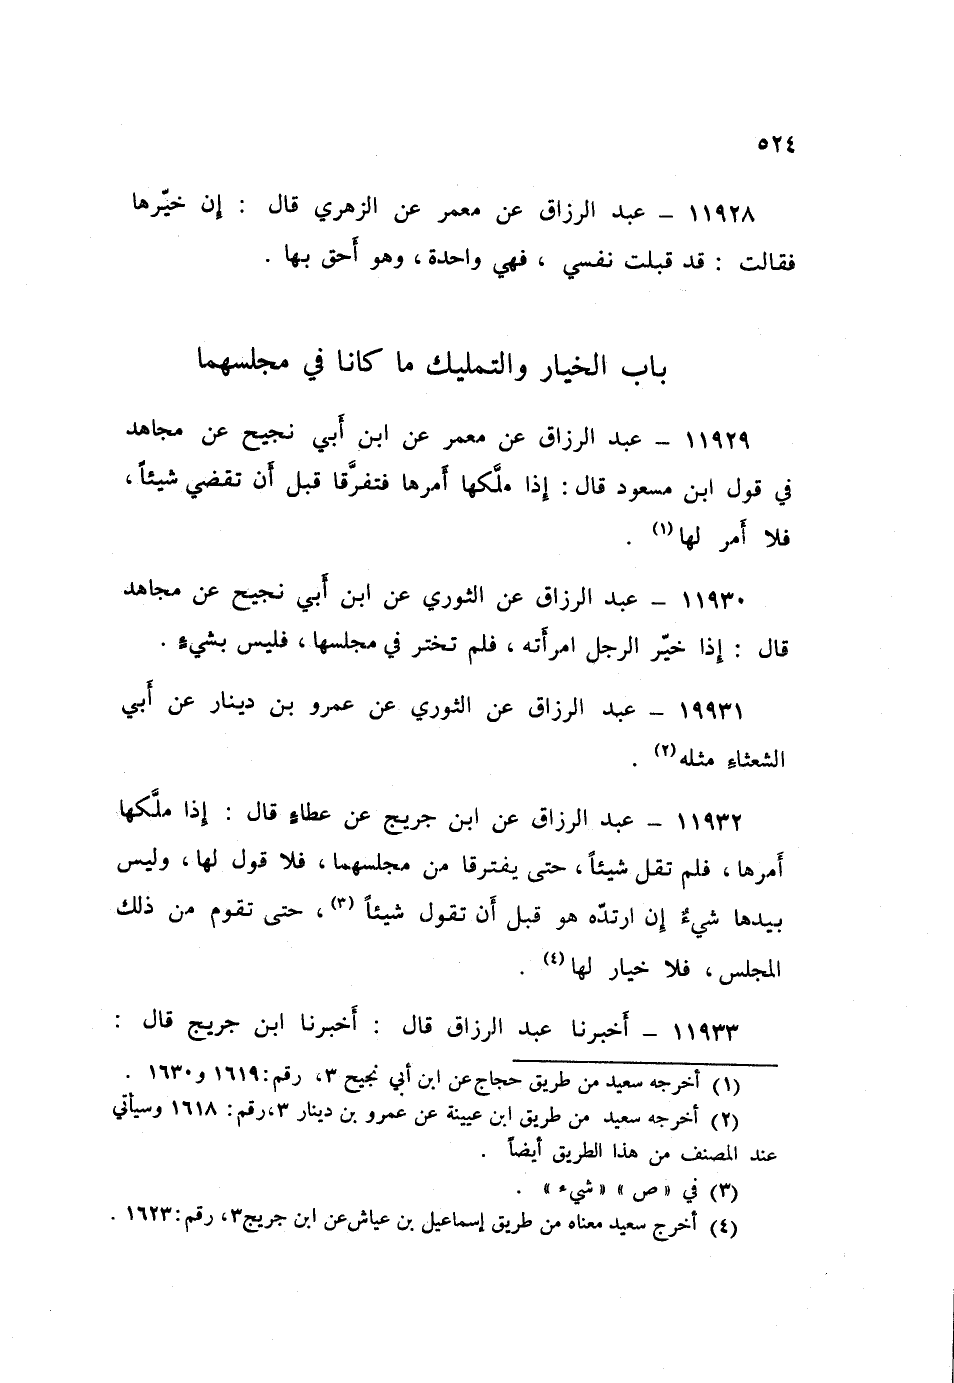 ٥٢٤
١١٩٢٨ – عبد الرزاق عن معمر عن الزهري قال : إن خيّرها
فقالت : قد قبلت نفسي ، فهي واحدة ، وهو أحق بها .
باب الخيار والتمليك ما كانا في مجلسهما
١١٩٢٩ – عبد الرزاق عن معمر عن ابن أبي نجيح عن مجاهد
في قول ابن مسعود قال : إذا ملَّكها أمرها فتفرَّقا قبل أن تقضي شيئاً ،
فلا أمر لها (١) .
١١٩٣٠ – عبد الرزاق عن الثوري عن ابن أبي نجيح عن مجاهد
قال : إذا خيّر الرجل امرأته ، فلم تختر في مجلسها ، فليس بشيءٍ .
١٩٩٣١ – عبد الرزاق عن الثوري عن عمرو بن دينار عن أبي
الشعثاء مثله (٢) .
١١٩٣٢ – عبد الرزاق عن ابن جريج عن عطاءٍ قال : إذا ملَّكها
أمرها ، فلم تقل شيئاً ، حتى يفترقا من مجلسهما ، فلا قول لها ، وليس
بيدها شيءٌ إن ارتدّه هو قبل أن تقول شيئاً (٣) ، حتى تقوم من ذلك
المجلس ، فلا خيار لها (٤) .
١١٩٣٣ – أخبرنا عبد الرزاق قال : أخبرنا ابن جريج قال :
(١) أخرجه سعيد من طريق حجاج عن ابن أبي نجيح ٣، رقم: ١٦١٩ و ١٦٣٠ .
(٢) أخرجه سعيد من طريق ابن عيينة عن عمرو بن دينار ٣، رقم: ١٦١٨ وسيأتي
عند المصنف من هذا الطريق أيضاً .
(٣) في « ص » « شيء » .
(٤) أخرج سعيد معناه من طريق إسماعيل بن عياش عن ابن جريج ٣، رقم: ١٦٢٣ .